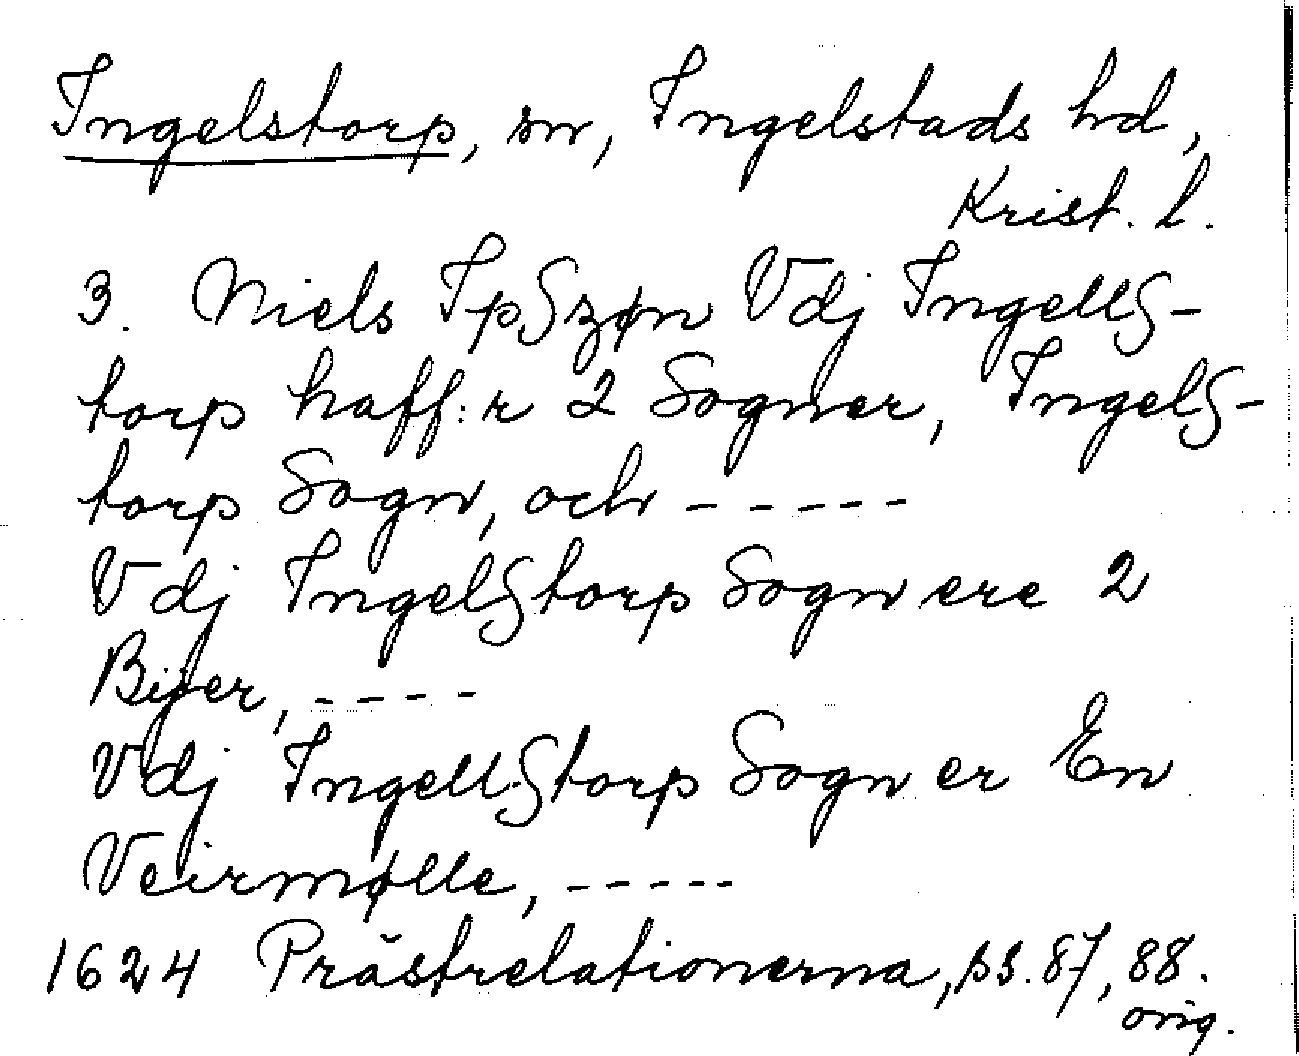 Ingelstorp, sn, Ingelstads hd,
Krist. l.
3. Niels IpSzøn Vdj IngellS-
torp haff:r 2 Sogner, IngelS-
torp Sogn, och - - - - -
Vdj IngelStorp Sogn ere 2
Bijer, - - - -
Vdj IngellStorp Sogn er En
Veirmølle, - - - - -
1624 Prästrelationerna, ss. 87, 88.
orig.